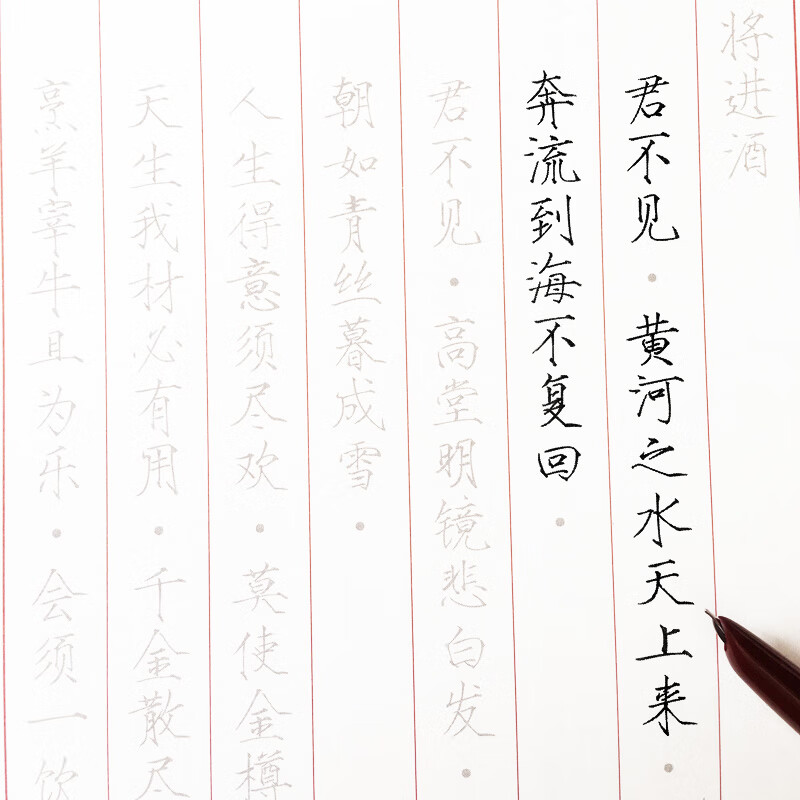 将进酒
君不见·黄河之水天上来·
奔流到海不复回·
君不见·高堂明镜悲白发·
朝如青丝暮成雪·
人生得意须尽欢·莫使金樽
天生我材必有用·千金散尽
烹羊宰牛且为乐·会须一饮